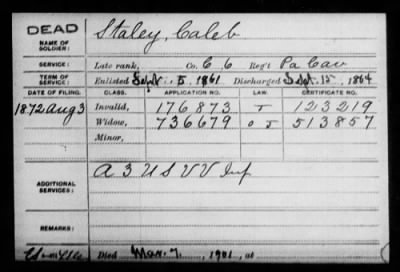 DEAD
NAME OF SOLDIER: Staley, Caleb
SERVICE: Late rank, Co. C 6 Reg't Pa Cav
TERM OF SERVICE: Enlisted Sept. 5, 1861 Discharged Sept. 15, 1864
DATE OF FILING. CLASS. APPLICATION NO. LAW. CERTIFICATE NO.
1872 Aug 3 Invalid, 176873 123219
Widow, 736679 513857
Minor,
ADDITIONAL SERVICES: A 3 U S V V Inf
REMARKS:
Died Mar. 7, 1901, at